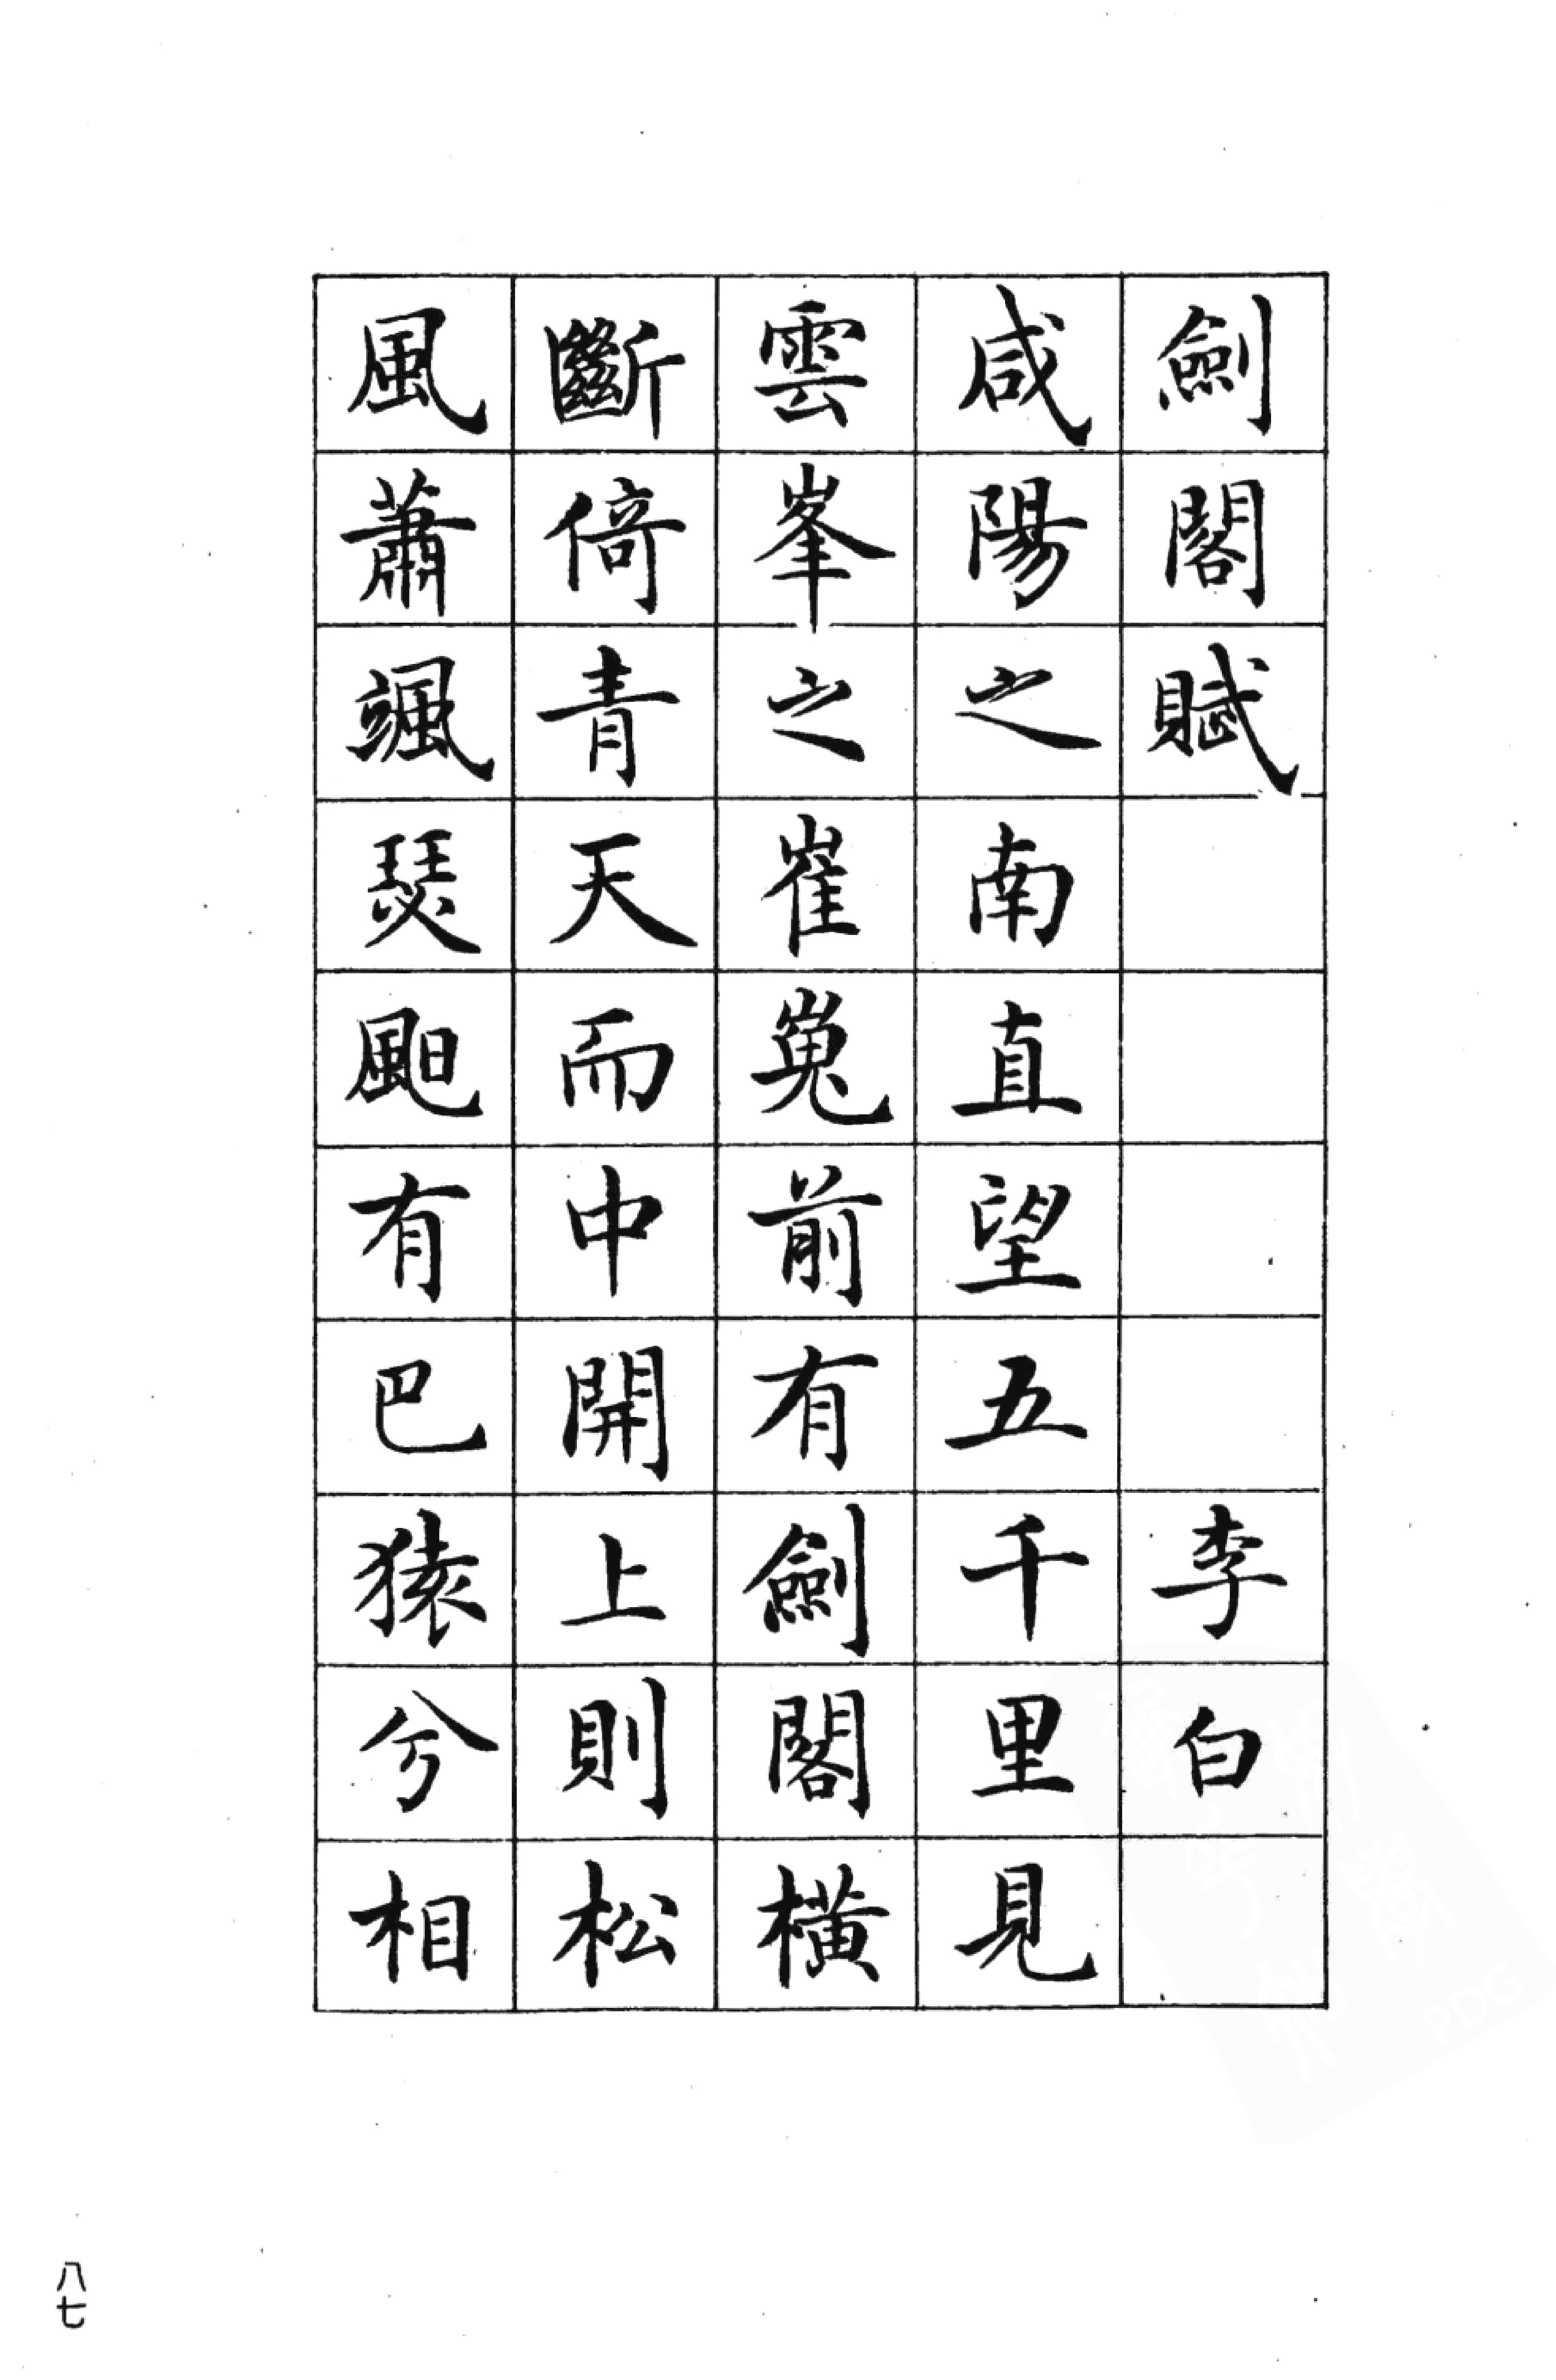 劍閣賦 李白
咸陽之南直望五千里見
雲峯之崔嵬前有劍閣橫
斷倚青天而中開上則松
風蕭颯瑟䬙有巴猿兮相
八七
PDG